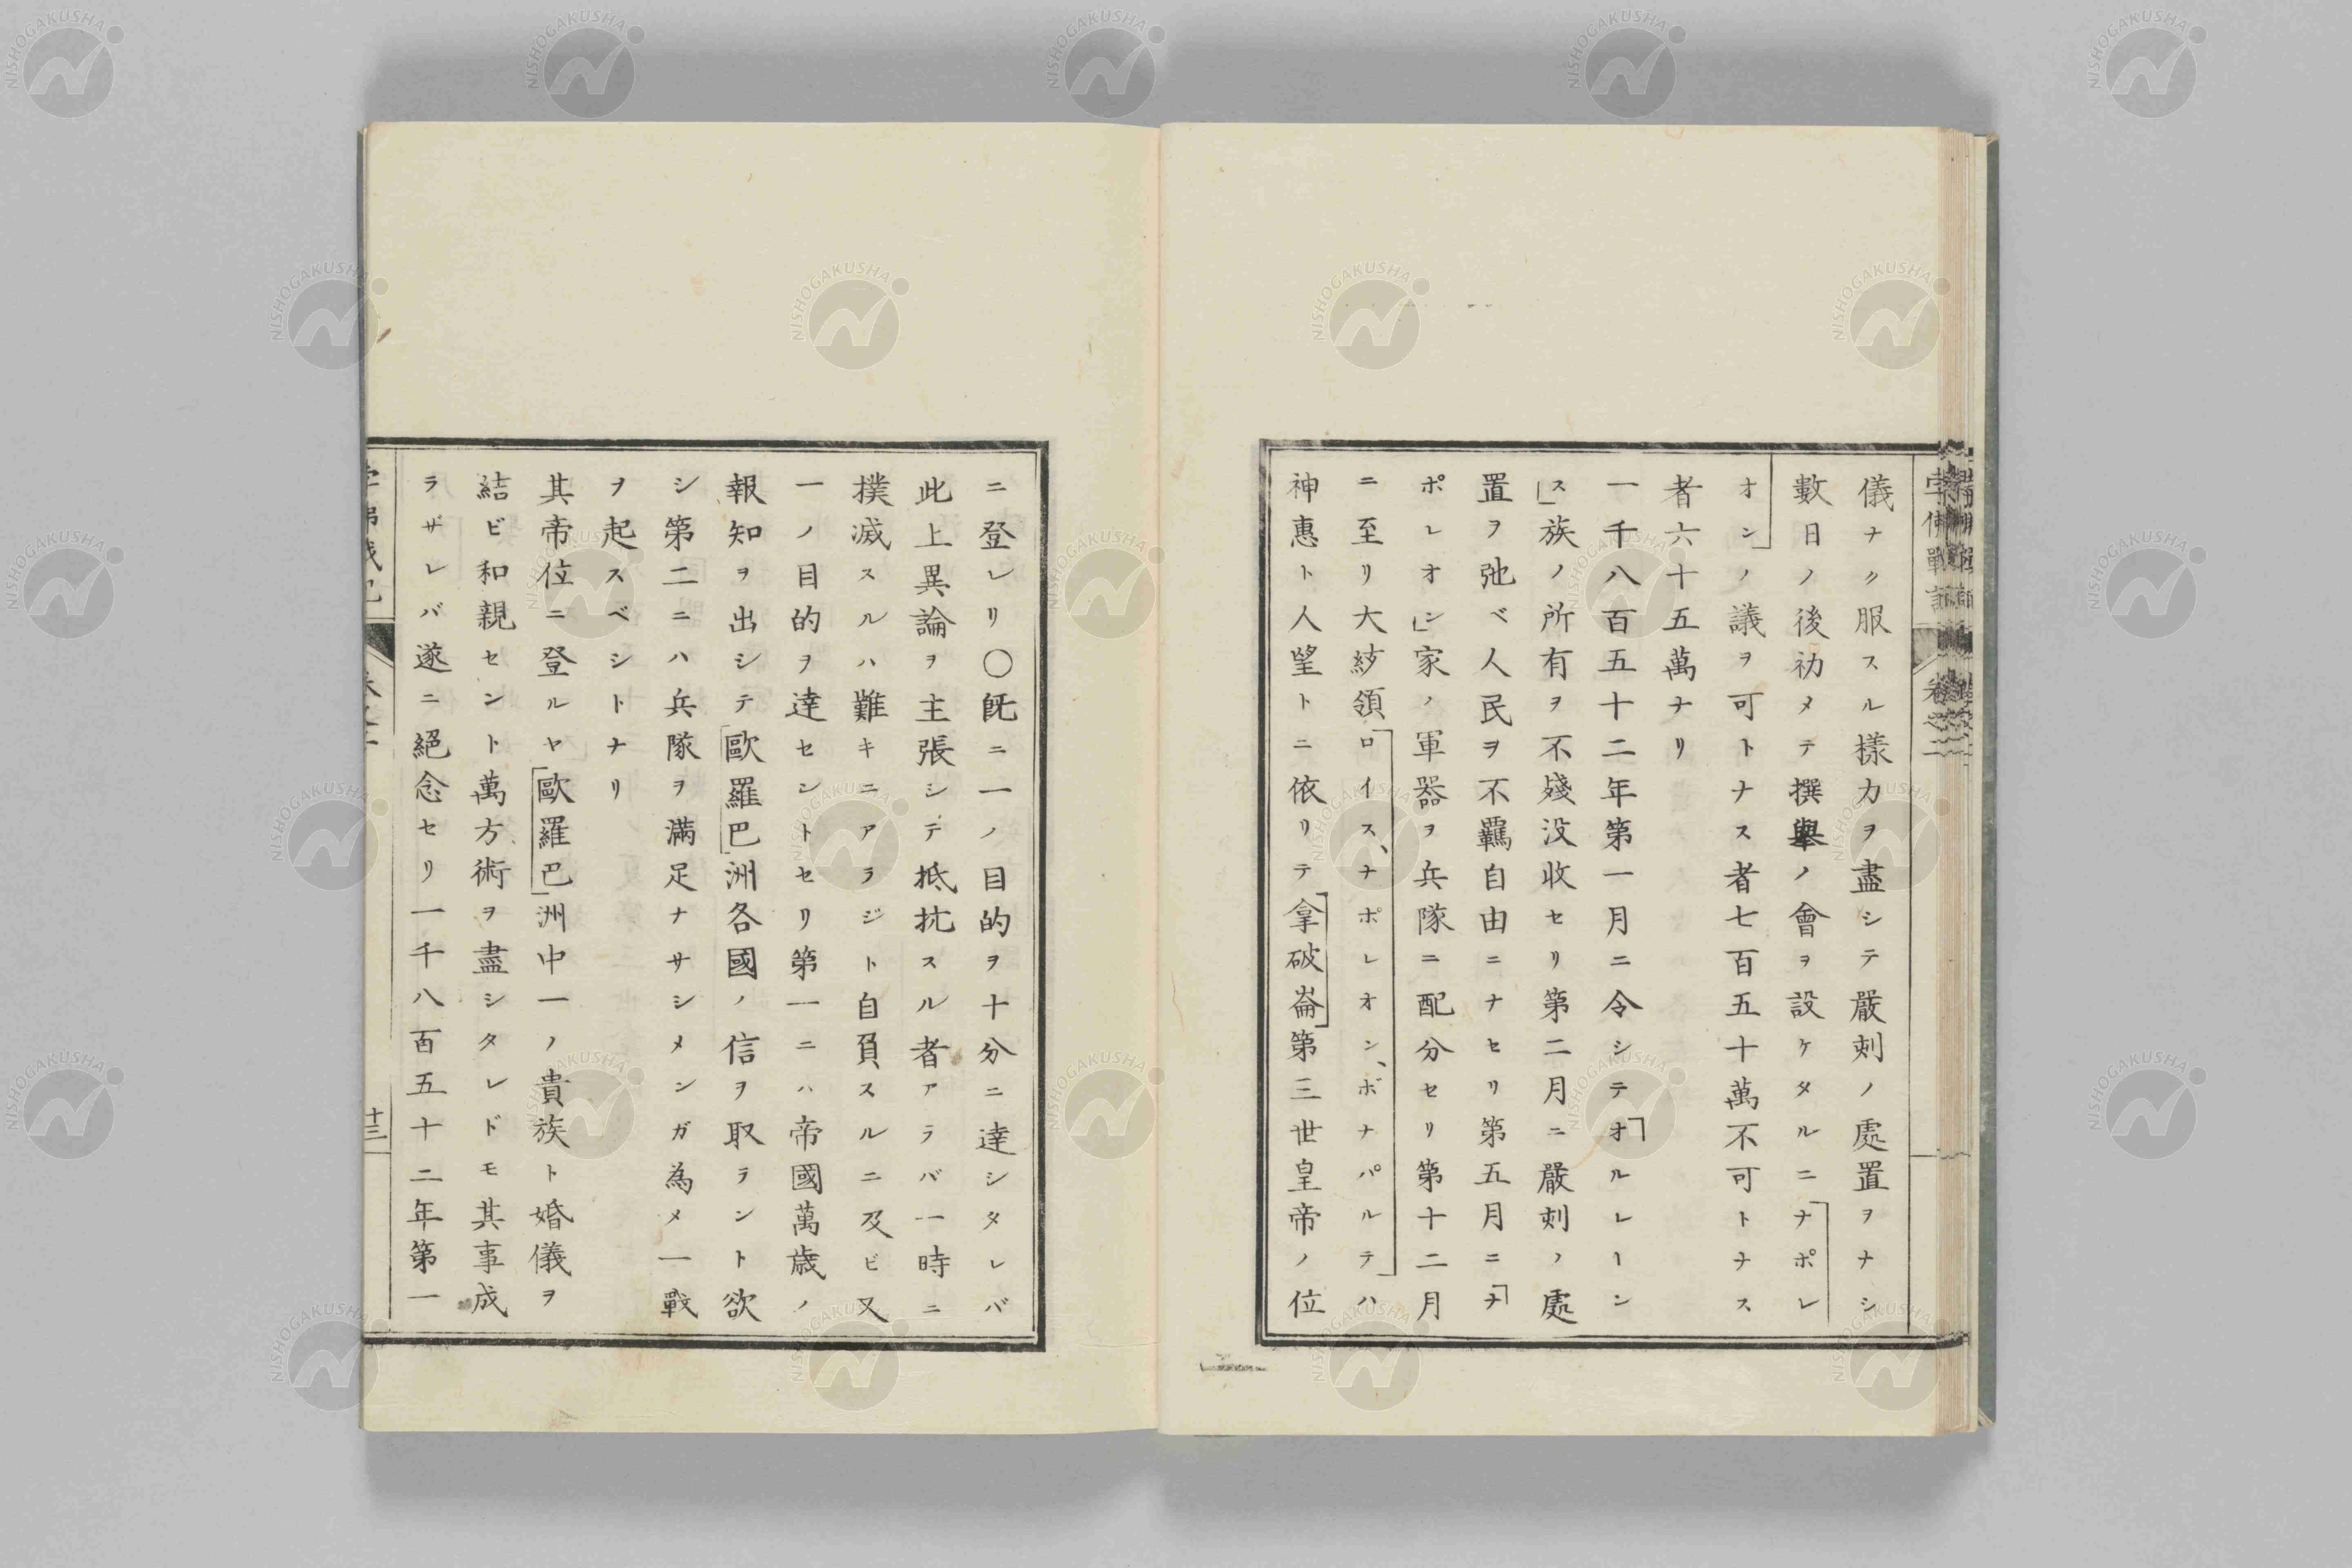 儀ナク服スル樣力ヲ盡シテ嚴刺ノ處置ヲナシ
數日ノ後初メテ撰擧ノ會ヲ設ケタルニナポレ
オンノ議ヲ可トナス者七百五十萬不可トナス
者六十五萬ナリ
一千八百五十二年第一月ニ令シテオルレーン
ス族ノ所有ヲ不殘没收セリ第二月ニ嚴刺ノ處
置ヲ弛ベ人民ヲ不羈自由ニナセリ第五月ニナ
ポレオン家ノ軍器ヲ兵隊ニ配分セリ第十二月
ニ至リ大紗領ロイス、ナポレオン、ボナパルテハ
神惠ト人望トニ依リテ拿破崙第三世皇帝ノ位
ニ登レリ〇既ニ一ノ目的ヲ十分ニ達シタレバ
此上異論ヲ主張シテ抵抗スル者アラバ一時ニ
撲滅スルハ難キニアラジト自負スルニ及ビ又
一ノ目的ヲ達セントセリ第一ニハ帝國萬歳ノ
報知ヲ出シテ歐羅巴洲各國ノ信ヲ取ラント欲
シ第二ニハ兵隊ヲ滿足ナサシメンガ為メ一戰
ヲ起スベシトナリ
其帝位ニ登ルヤ歐羅巴洲中一ノ貴族ト婚儀ヲ
結ビ和親セント萬方術ヲ盡シタレドモ其事成
ラザレバ遂ニ絕念セリ一千八百五十二年第一
十三
NISHOGAKUSHA